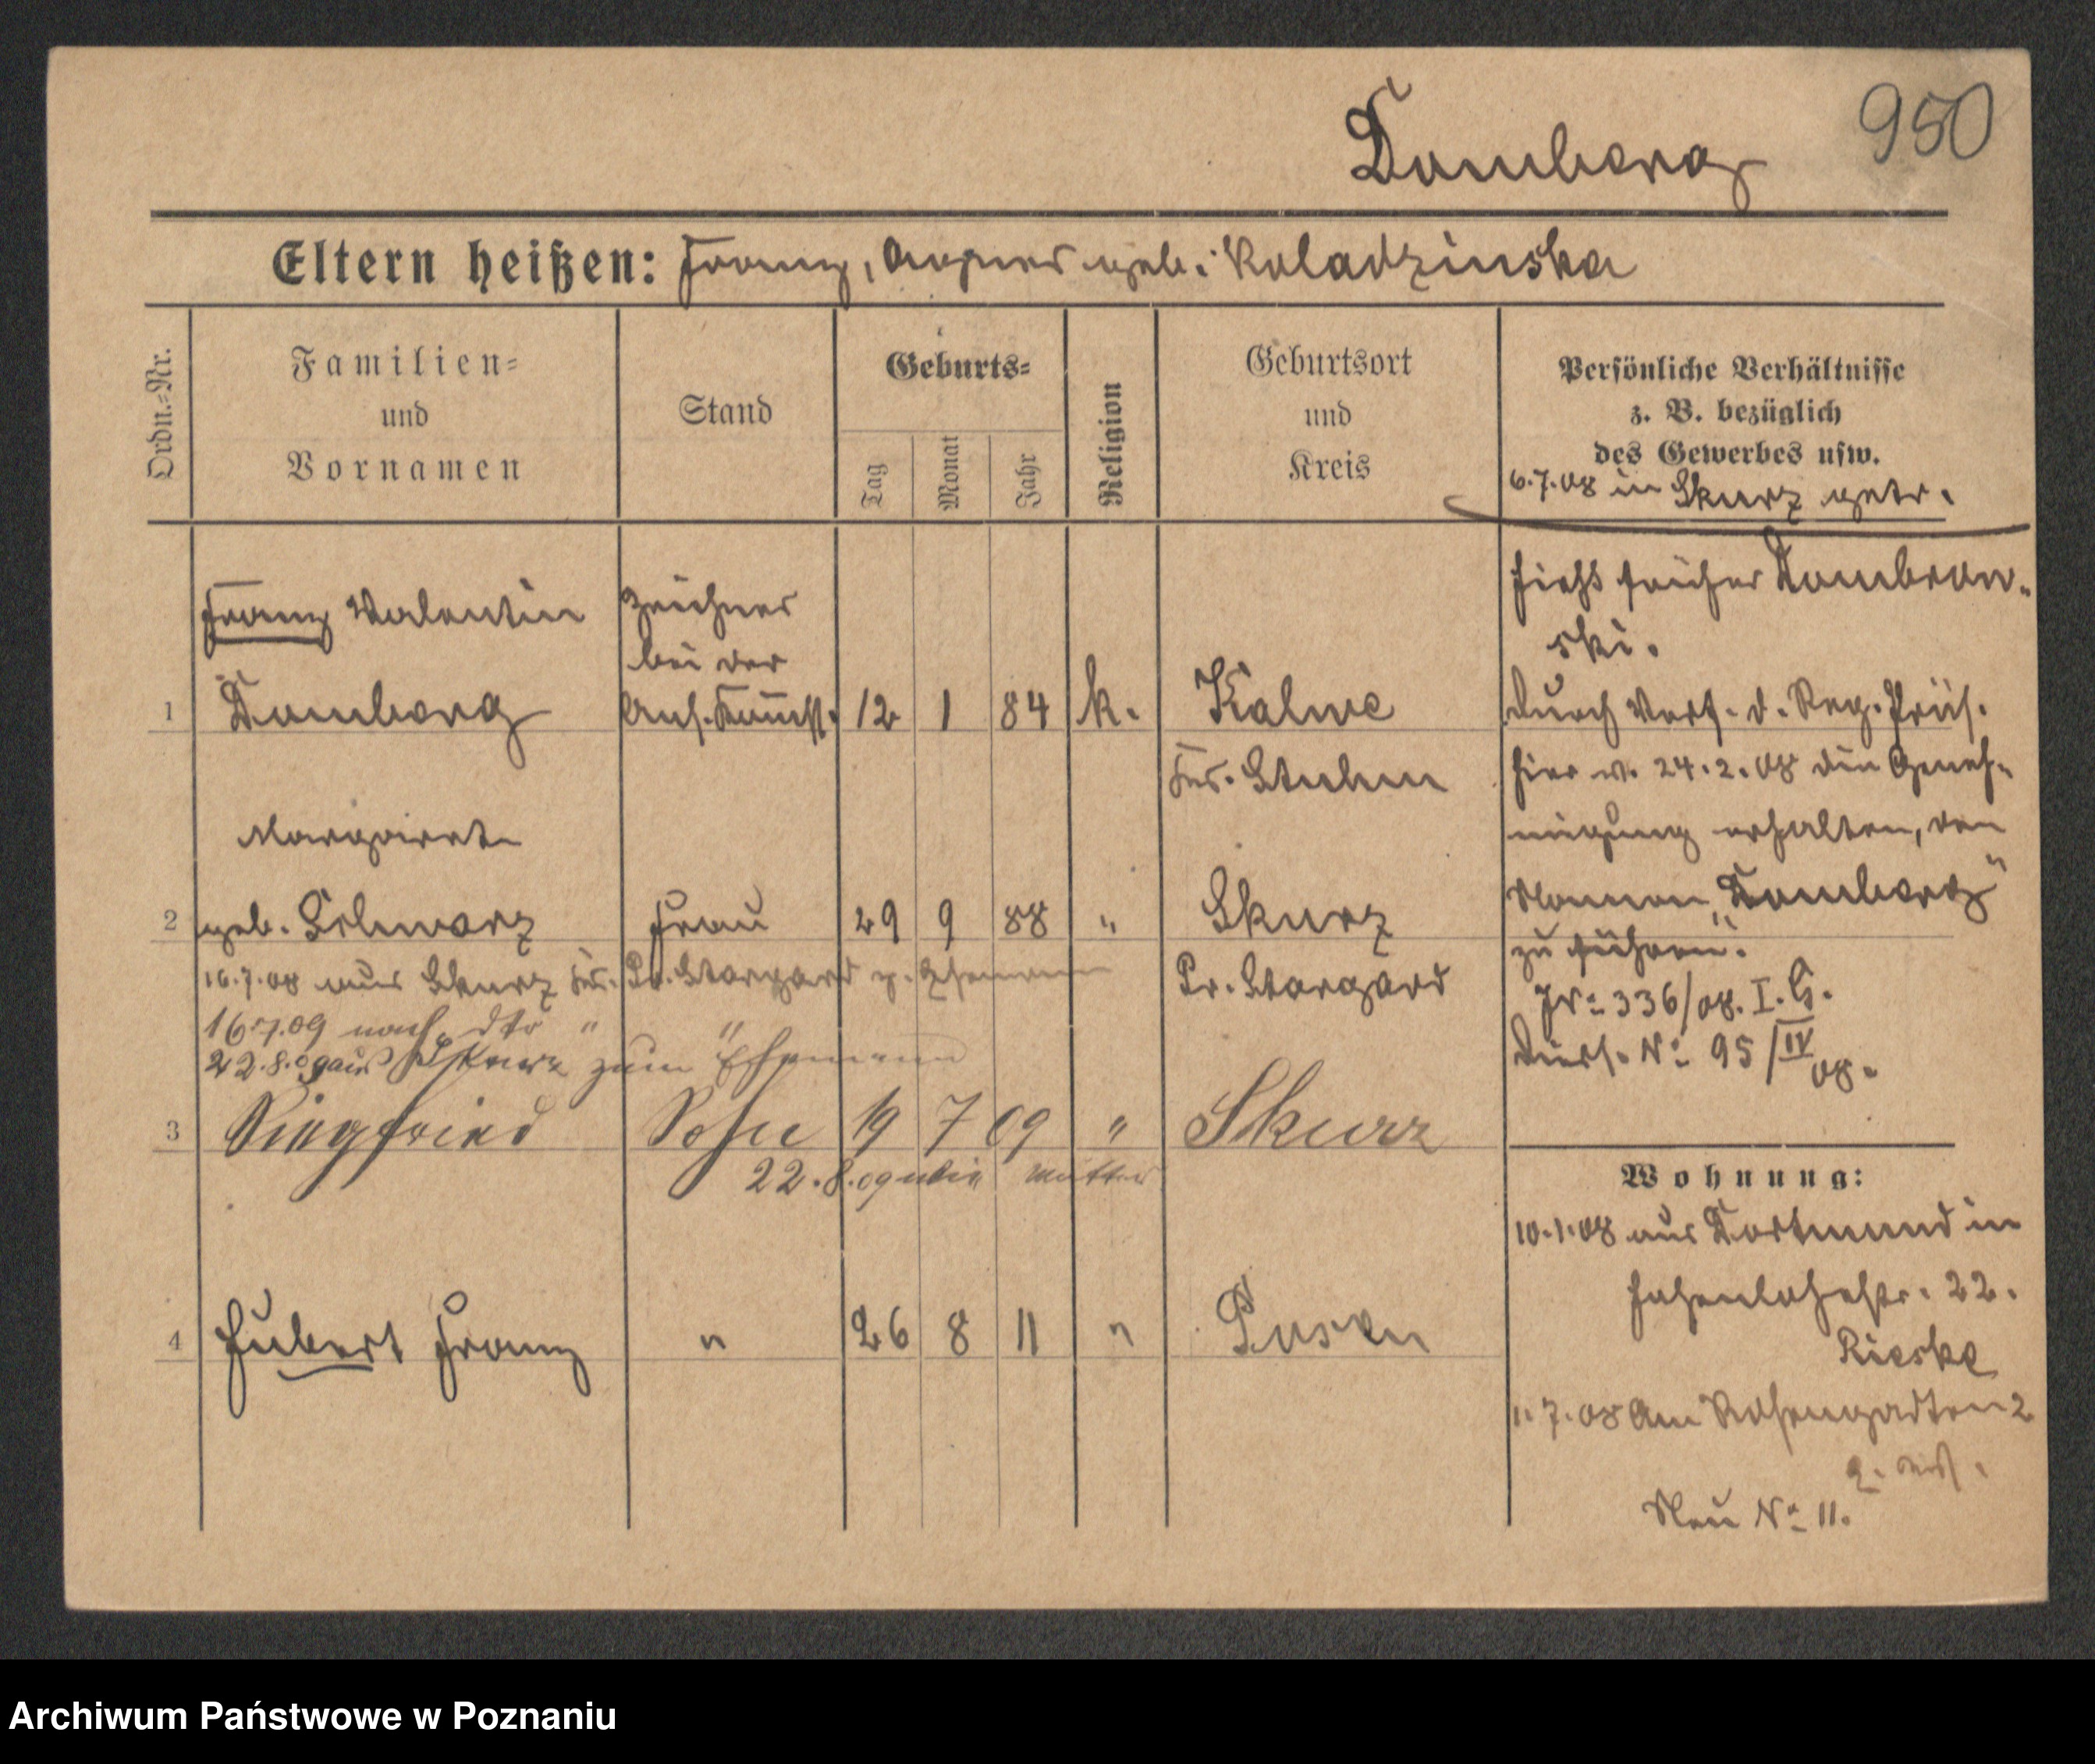 950
Domberg
Eltern heißen: Franz, Agnes geb. Koladzinska
Ordn.-Nr.
Familien-
und
Vornamen
Stand
Geburts-
Tag
Monat
Jahr
Religion
Geburtsort
und
Kreis
Persönliche Verhältnisse
z. B. bezüglich
des Gewerbes usw.
6.7.08 in Skurz getr.
Franz Valentin
Zeichner
bei der
1 Domberg Ans. Kommss. 12 1 84 k. Kalwe
Krs. Stuhm
hieß früher Dombrow-
ski.
Durch Verf. d. Reg. Präs.
hier v. 24.2.08 die Geneh-
migung erhalten, den
Namen „Domberg"
zu führen.
JN: 336/08. I. G.
N: 95/IV 08.
Margarete
2 geb. Schwarz Frau 29 9 88 " Skurz
Pr. Stargard
16.7.08 aus Skurz Krs. Pr. Stargard z. Ehemann
16.7.09 nach dto " "
22.8.09 aus Skurz zum Ehemann
3 Siegfried Sohn 19 7 09 " Skurz
22.8.09 Mutter
4 Hubert Franz " 26 8 11 " Posen
Wohnung:
10.1.08 aus Dortmund in
Hohenlohestr. 22.
Rieske
1.7.08 Am Rosengarten 2
Neu No 11.
Archiwum Państwowe w Poznaniu